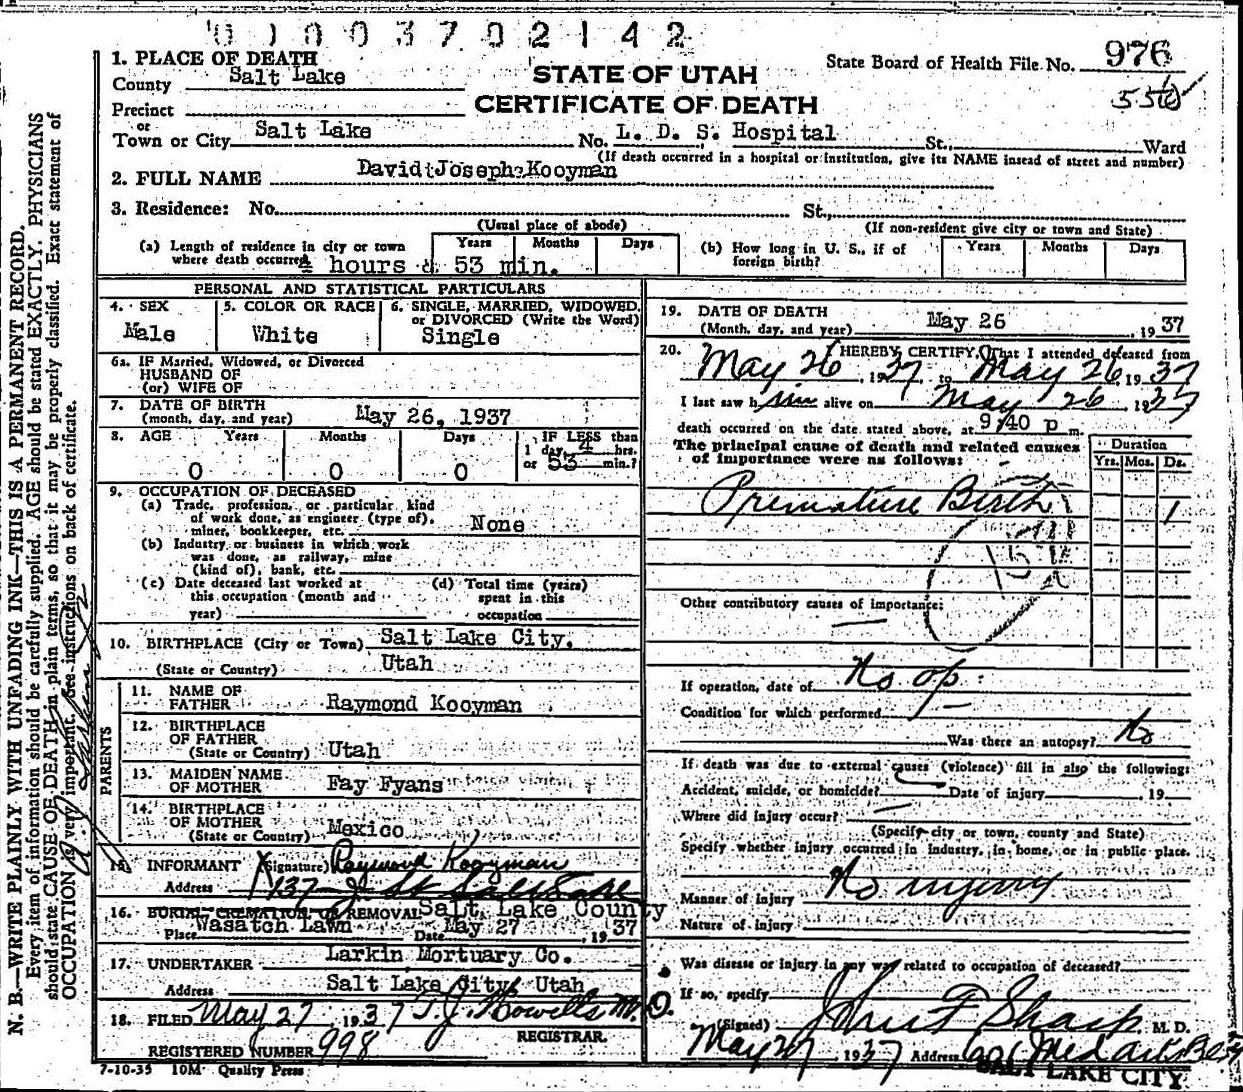 0 0 0 0 3 7 0 2 1 4 2
1. PLACE OF DEATH
County Salt Lake
STATE OF UTAH
CERTIFICATE OF DEATH
State Board of Health File No. 976
Precinct
or
Town or City Salt Lake No. L. D. S. Hospital St., Ward
(If death occurred in a hospital or institution, give its NAME insead of street and number)
2. FULL NAME David Joseph Kooyman
3. Residence: No. St.,
(Usual place of abode) (If non-resident give city or town and State)
(a) Length of residence in city or town where death occurred 4 hours & 53 min.
Years Months Days
(b) How long in U. S., if of foreign birth?
Years Months Days
PERSONAL AND STATISTICAL PARTICULARS
4. SEX
Male
5. COLOR OR RACE
White
6. SINGLE, MARRIED, WIDOWED, or DIVORCED (Write the Word)
Single
6a. IF Married, Widowed, or Divorced
HUSBAND OF
(or) WIFE OF
7. DATE OF BIRTH
(month, day, and year) May 26, 1937
8. AGE Years Months Days IF LESS than
0 0 0 1 day, 4 hrs.
or 53 min.?
9. OCCUPATION OF DECEASED
(a) Trade, profession, or particular kind
of work done, as engineer (type of),
miner, bookkeeper, etc. None
(b) Industry or business in which work
was done, as railway, mine
(kind of), bank, etc.
(c) Date deceased last worked at
this occupation (month and
year)
(d) Total time (years)
spent in this
occupation
10. BIRTHPLACE (City or Town) Salt Lake City,
(State or Country) Utah
PARENTS
11. NAME OF
FATHER Raymond Kooyman
12. BIRTHPLACE
OF FATHER
(State or Country) Utah
13. MAIDEN NAME
OF MOTHER Fay Fyans
14. BIRTHPLACE
OF MOTHER
(State or Country) Mexico
15. INFORMANT X (Signature) Raymond Kooyman
Address 137 J St Salt Lake
16. BURIAL, CREMATION, OR REMOVAL Salt Lake County
Place Wasatch Lawn Date May 27, 1937
17. UNDERTAKER Larkin Mortuary Co.
Address Salt Lake City, Utah
18. FILED May 27 1937 T. J. Howells M.D.
REGISTRAR
REGISTERED NUMBER 998
7-10-35 10M Quality Press
19. DATE OF DEATH
(Month, day, and year) May 26, 1937
20. I HEREBY CERTIFY, That I attended deceased from
May 26, 1937 to May 26 1937
I last saw him alive on May 26 1937
death occurred on the date stated above, at 9:40 p m.
The principal cause of death and related causes
of importance were as follows:
Duration
Yrs. Mos. Ds.
Premature Birth 1
Other contributory causes of importance:
If operation, date of No op.
Condition for which performed
Was there an autopsy? No
If death was due to external causes (violence) fill in also the following:
Accident, suicide, or homicide? Date of injury 19
Where did injury occur?
(Specify city or town, county and State)
Specify whether injury occurred in industry, in home, or in public place.
Manner of injury No injury
Nature of injury
Was disease or injury in any way related to occupation of deceased?
If so, specify
(Signed) John F Sharp, M. D.
May 27 1937 Address 601 Med Arts Bldg
SALT LAKE CITY
N. B.—WRITE PLAINLY WITH UNFADING INK—THIS IS A PERMANENT RECORD.
Every item of information should be carefully supplied. AGE should be stated EXACTLY. PHYSICIANS
should state CAUSE OF DEATH in plain terms, so that it may be properly classified. Exact statement of
OCCUPATION is very important. See instructions on back of certificate.